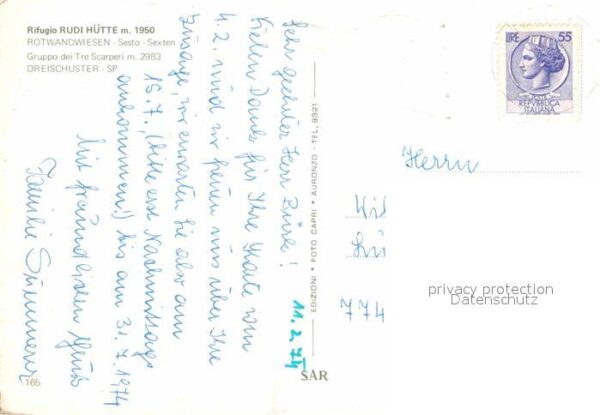 Rifugio RUDI HÜTTE m. 1950
ROTWANDWIESEN - Sesto - Sexten
Gruppo dei Tre Scarperi m. 2983
DREISCHUSTER - SP
11.2.74
Sehr geehrter Herr
Vielen Dank für Ihre Karte vom
4.2. und wir freuen uns über Ihre
Zusage, wir erwarten Sie also am
15.7., (bitte erst Nachmittags
ankommen!) bis am 31.7.1974
Mit freundlichen Grüß
Familie
165
EDIZIONI • FOTO CAPRI • AURONZO - TEL. 9321
SAR
LIRE 55
POSTE
REPVBBLICA
ITALIANA
Herrn
774
privacy protection
Datenschutz